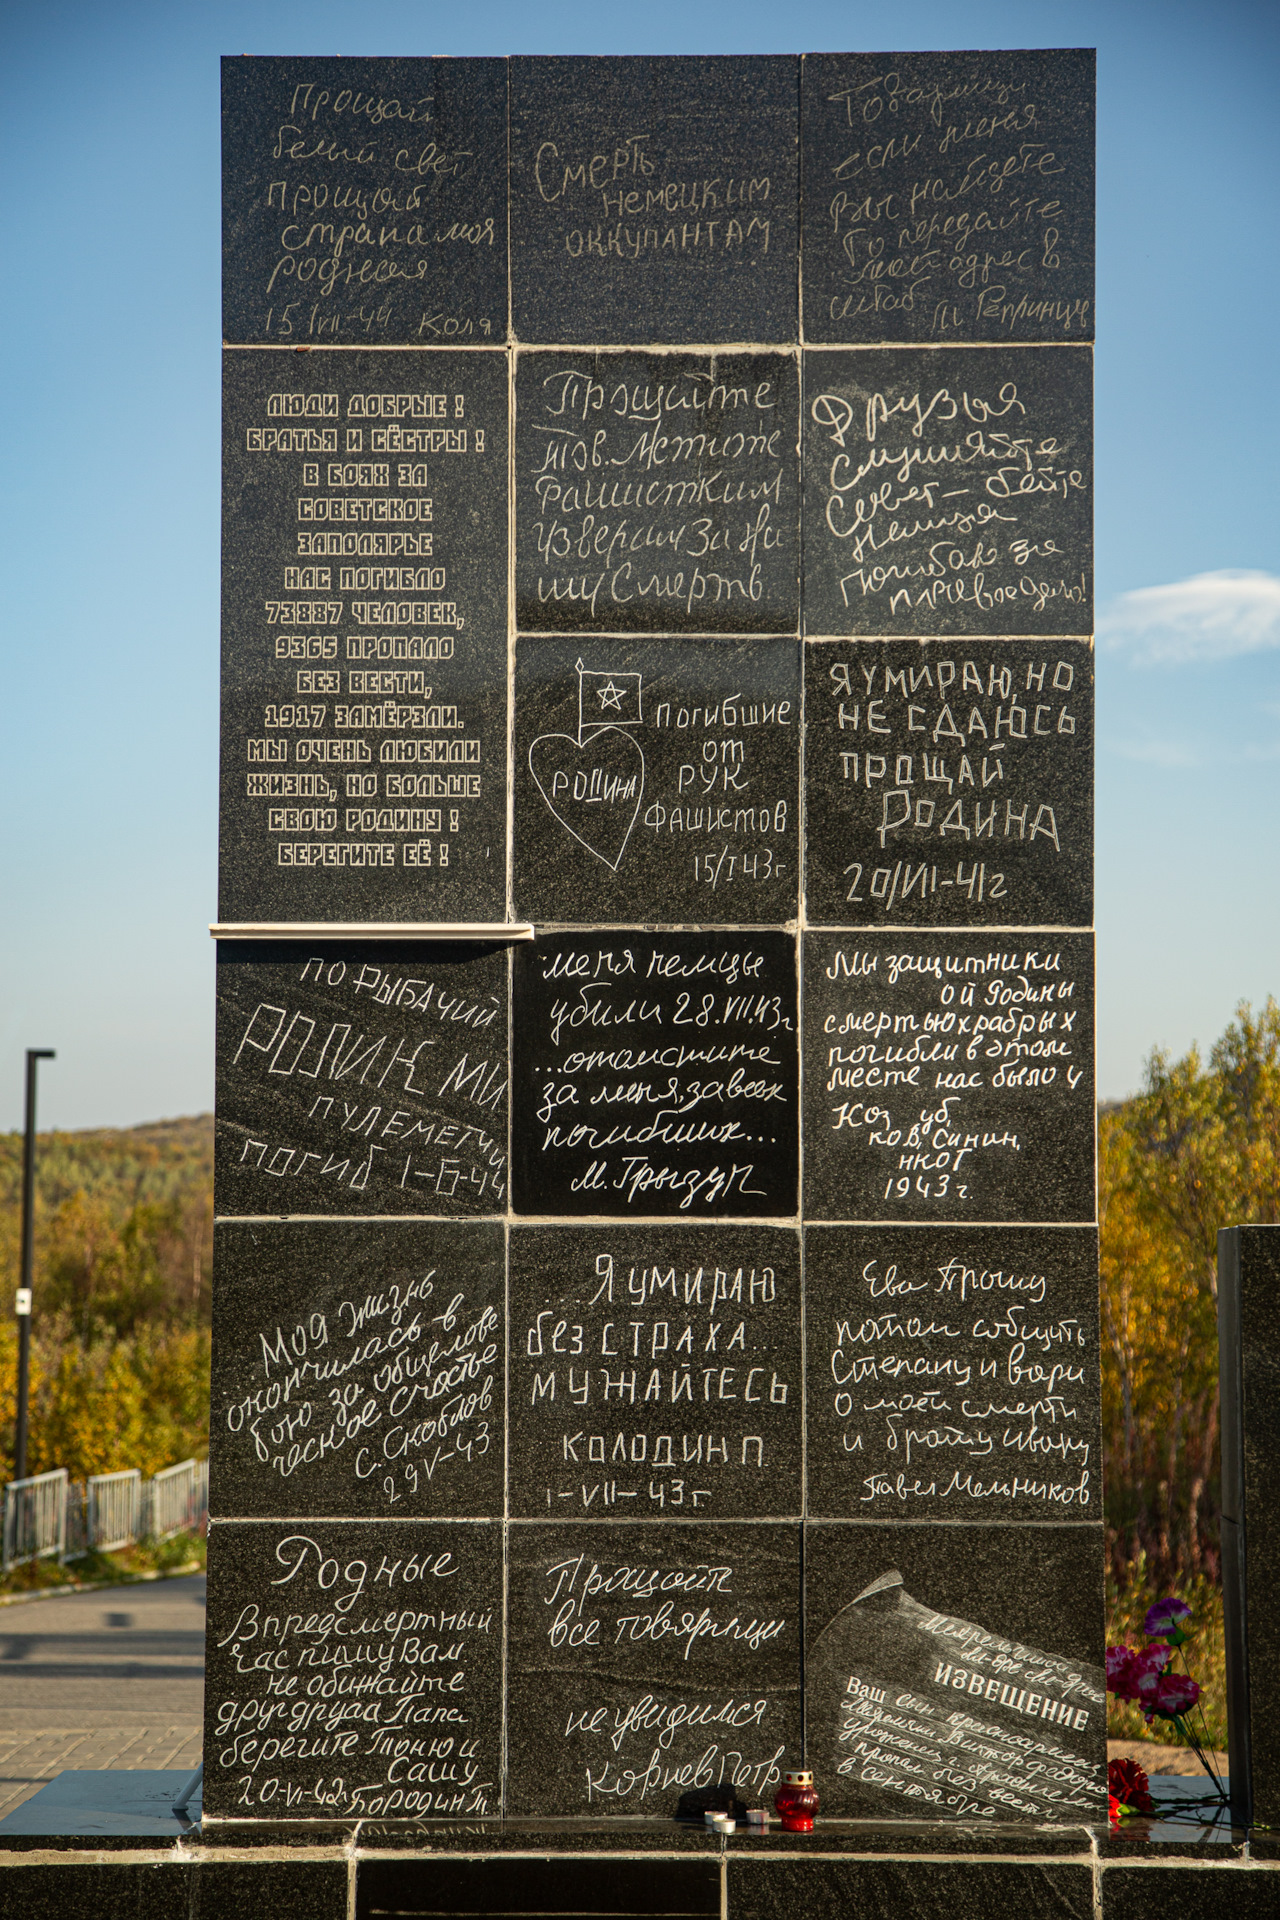 Прощай
белый свет
Прощай
страна моя
родная
15/VII-44 Коля
Смерть
немецким
оккупантам
Товарищи
если меня
вы найдете
То передайте
мой адрес в
штаб
ЛЮДИ ДОБРЫЕ !
БРАТЬЯ И СЁСТРЫ !
В БОЯХ ЗА
СОВЕТСКОЕ
ЗАПОЛЯРЬЕ
НАС ПОГИБЛО
73887 ЧЕЛОВЕК,
9365 ПРОПАЛО
БЕЗ ВЕСТИ,
1917 ЗАМЁРЗЛИ.
МЫ ОЧЕНЬ ЛЮБИЛИ
ЖИЗНЬ, НО БОЛЬШЕ
СВОЮ РОДИНУ !
БЕРЕГИТЕ ЕЁ !
Прощайте
тов. Мстите
фашистким
Узверям За На
шу Смерть
Друзья
Слушайте
Совет – бейте
Немца
Погибаю за
правое дело!
РОДИНА
ПОГИБШИЕ
ОТ
РУК
ФАШИСТОВ
15/I 43г
Я УМИРАЮ, НО
НЕ СДАЮСЬ
ПРОЩАЙ
РОДИНА
20/VII-41г
ПО РЫБАЧИЙ
РОДИК МИ
ПУЛЕМЕТЧИ
ПОГИБ 1-6-44
меня немцы
убили 28.VII.43г.
...отомстите
за меня, за всех
погибших...
М. Грызун
Мы защитники
ой Родины
смертью храбрых
погибли в этом
месте нас было 4
Коз уб,
ков, Синин,
нкот
1943 г.
...Моя жизнь
окончилась в
бою за общелове
ческое счастье
С. Скоблов
29 V-43
...Я УМИРАЮ
без СТРАХА...
МУЖАЙТЕСЬ
КОЛОДИН П
1-VII-43г.
Ева Прошу
потом собщить
Степану и вари
О моей смерти
и брату Ивану
Павел Мельников
Родные
В предсмертный
час пишу Вам
не обижайте
друг друга Папа
берегите Тоню и
Сашу
20-VI-42г Бородин Т.
Прощайте
все товарищи
не увидимся
Корнев Петр
ИЗВЕЩЕНИЕ
Ваш сын красноармеец
Виктор
пропал без вести
в сентябре